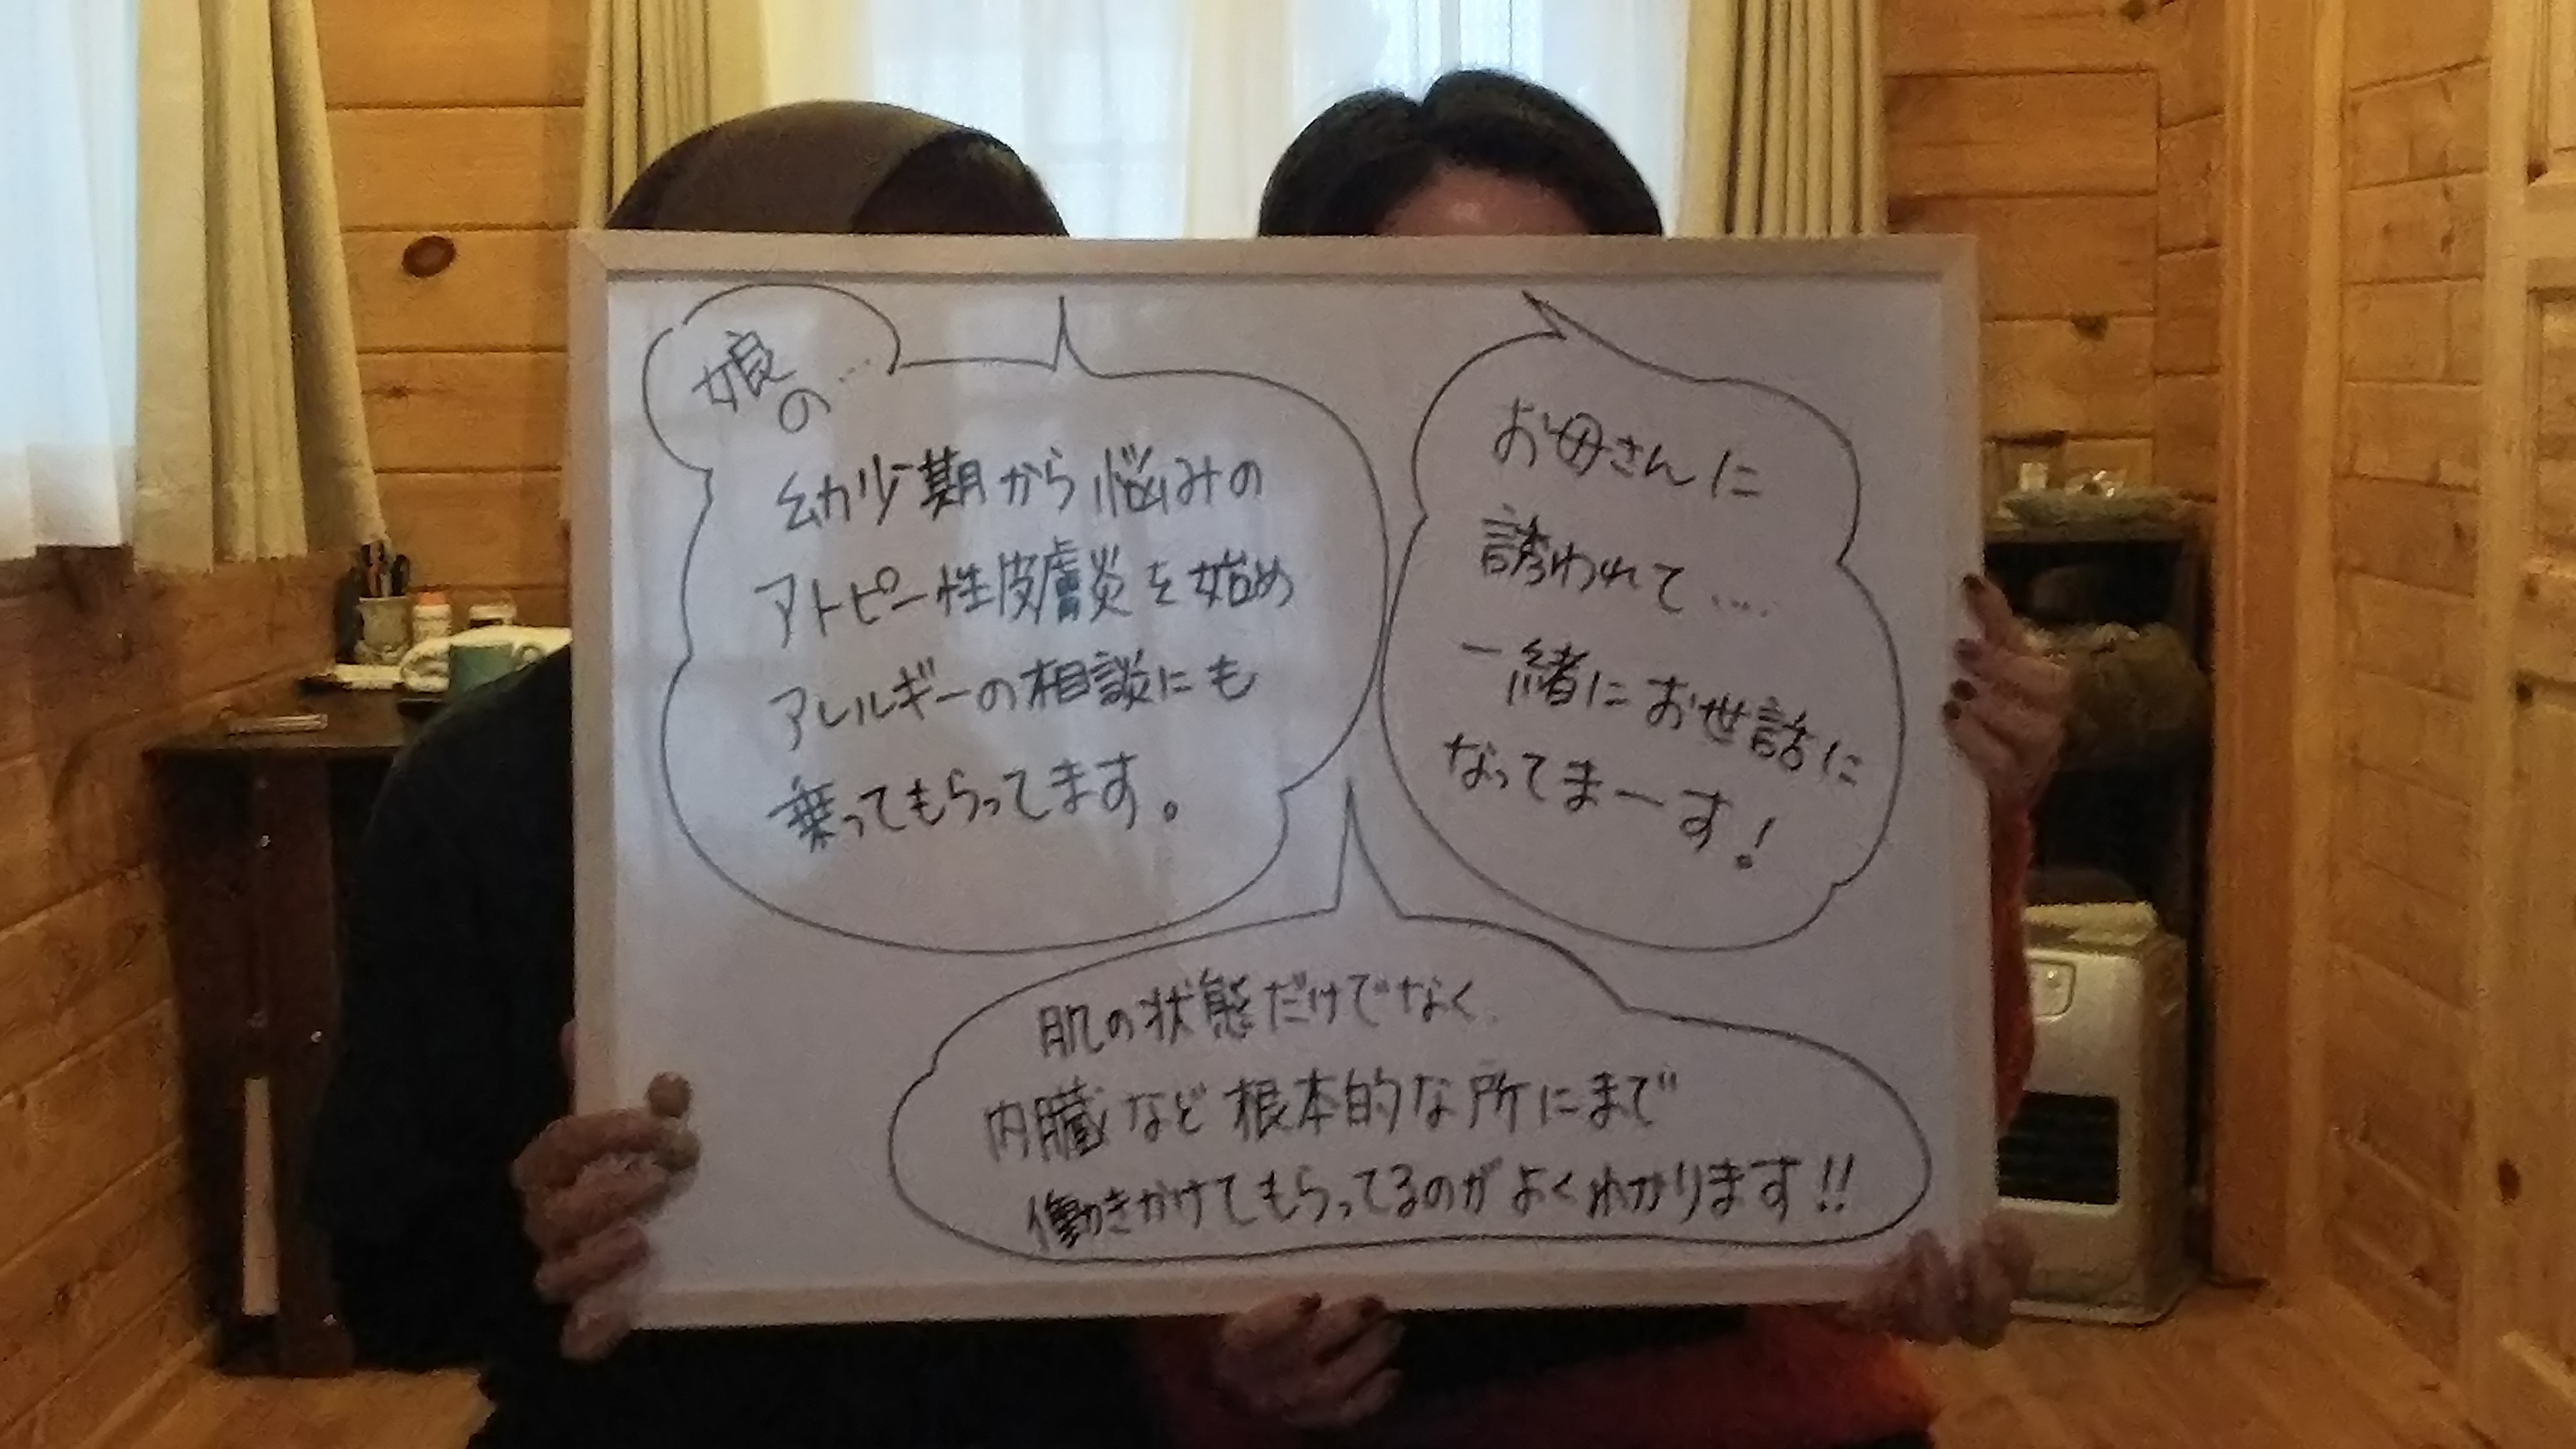 娘
の…
幼少期から悩みの
アトピー性皮膚炎を始め
アレルギーの相談にも
乗ってもらってます。
お母さんに
誘われて….
一緒にお世話に
なってまーす!
肌の状態だけでなく
内臓など根本的な所にまで
働きかけてもらってるのがよくわかります!!